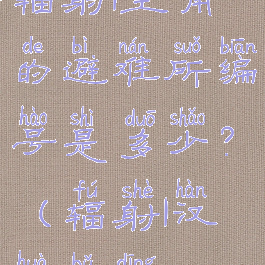 辐射
de bì nán suǒ biān
的避难所编
hào shì duō shǎo
号是多少?
fú shè hàn
(辐射|汉